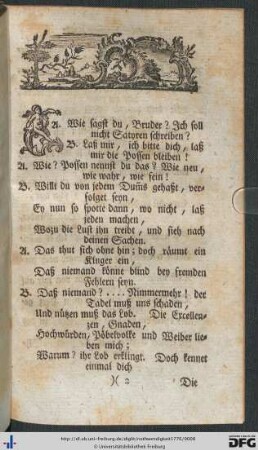 A. Wie sagst du, Bruder? Ich soll
nicht Satyren schreiben?
B. Laß mir, ich bitte dich, laß
mir die Possen bleiben!
A. Wie? Possen nennst du das? Wie neu,
wie wahr, wie fein!
B. Willt du von jedem Dums gehaßt, ver-
folget seyn,
Ey nun so spotte dann, wo nicht, laß
jeden machen,
Wozu die Lust ihn treibt, und sieh nach
deinen Sachen.
A. Das thut sich ohne hin; doch räumt ein
Kluger ein,
Daß niemand könne blind bey fremden
Fehlern seyn.
B. Daß niemand? .... Nimmermehr! der
Tadel muß uns schaden,
Und nützen muß das Lob. Die Excellen-
zen, Gnaden,
Hochwürden, Pöbelvolke und Weiber lie-
ben mich;
Warum? ihr Lob erklingt. Doch kennet
einmal dich
)( 2 Die
© Universitätsbibliothek Freiburg
gefördert durch
DFG